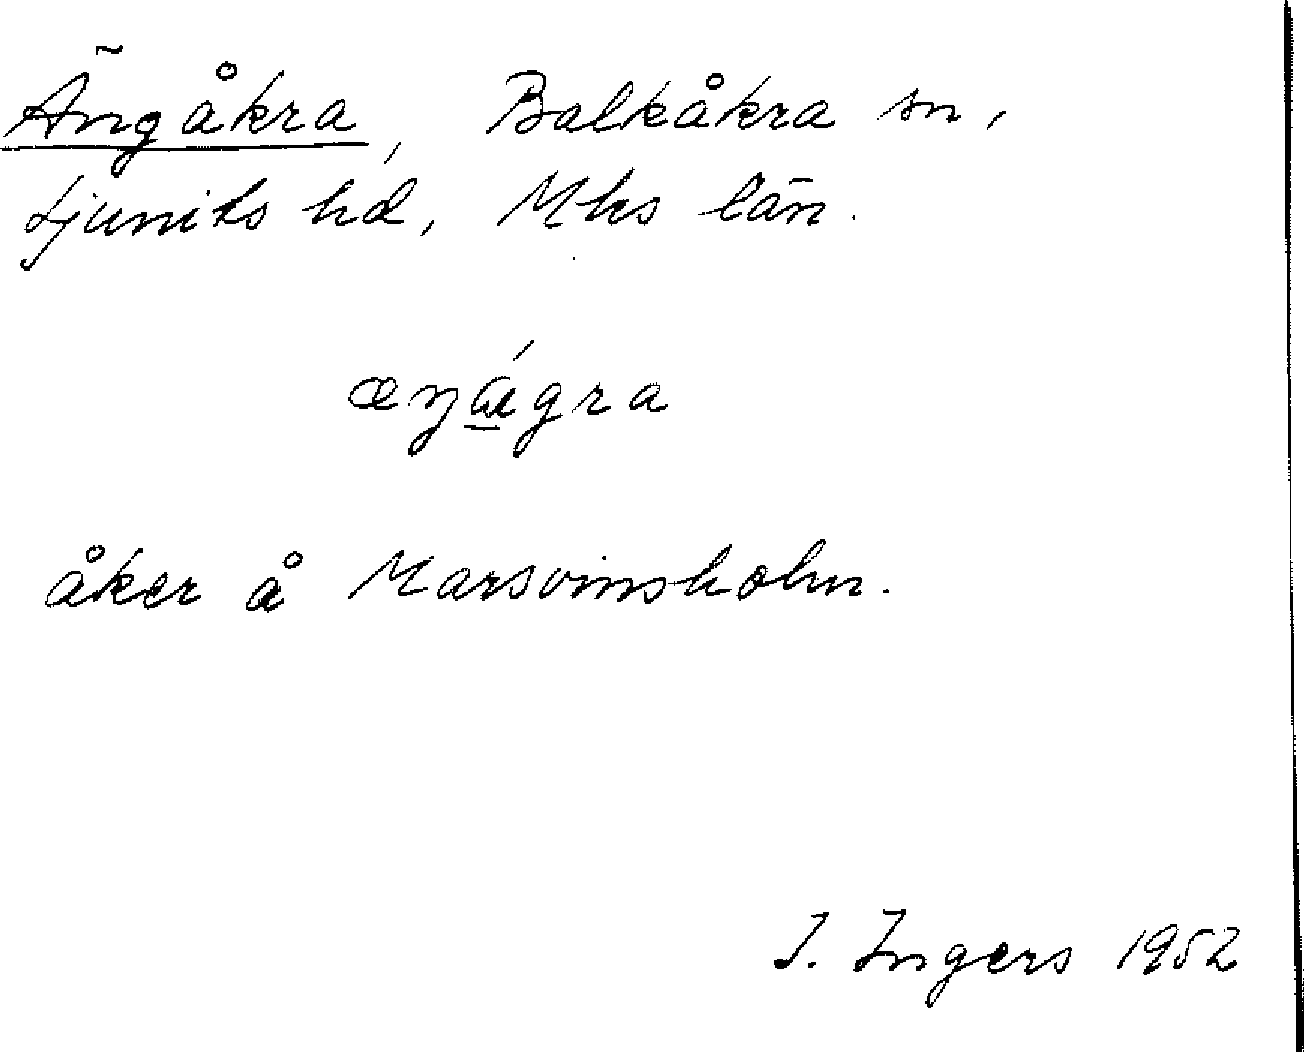 Ängåkra, Balkåkra sn,
Ljunits hd, Mhs län.
æŋágra
åker å Marsvinsholm.
I. Ingers 1952